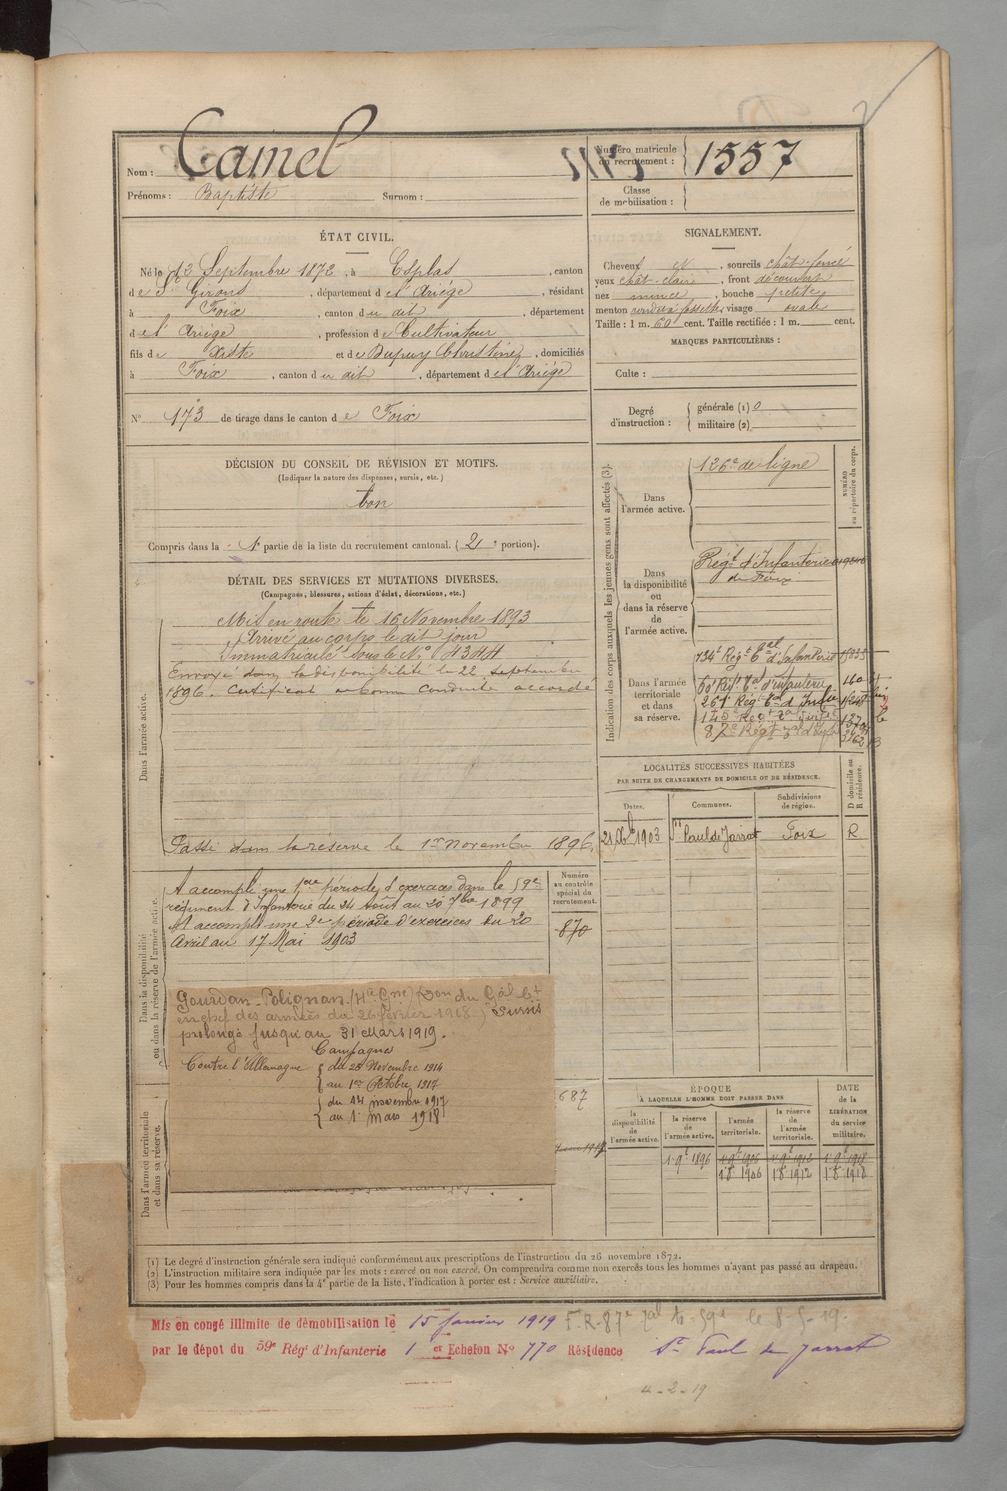 Nom : Camel
Prénoms : Baptiste Surnom :
Numéro matricule du recrutement : 1557
Classe de mobilisation :
ÉTAT CIVIL.
Né le 12 Septembre 1872, à Esplas, canton
de St Girons, département de l'Ariège, résidant
à Foix, canton du dit, département
de l'Ariège, profession de Cultivateur
fils de Xiste et de Dupuy Christine, domiciliés
à Foix, canton du dit, département de l'Ariège
N° 173 de tirage dans le canton de Foix
SIGNALEMENT.
Cheveux et, sourcils chât. foncé
yeux chât-clair, front découvert
nez mince, bouche petite
menton rond à fossette visage ovale
Taille : 1 m. 60 cent. Taille rectifiée : 1 m. cent.
MARQUES PARTICULIÈRES :
Culte :
Degré d'instruction : générale (1) 0
militaire (2)
DÉCISION DU CONSEIL DE RÉVISION ET MOTIFS.
(Indiquer la nature des dispenses, sursis, etc.)
bon
Compris dans la 1e partie de la liste du recrutement cantonal. (2e portion).
DÉTAIL DES SERVICES ET MUTATIONS DIVERSES.
(Campagnes, blessures, actions d'éclat, décorations, etc.)
Dans l'armée active.
Mis en route le 16 Novembre 1893
Arrivé au corps le dit jour
Immatriculé sous le N° 4344
Envoyé dans la disponibilité le 22 septembre
1896. Certificat de bonne conduite accordé
Passé dans la réserve le 1er novembre 1896.
Dans la disponibilité ou dans la réserve de l'armée active.
A accompli une 1ère période d'exercices dans le 59e
régiment d'Infanterie du 24 Août au 20 7bre 1899
A accompli une 2e période d'exercices du 20
Avril au 17 Mai 1903
Numéro au contrôle spécial du recrutement.
870
Dans l'armée territoriale et dans sa réserve.
Gourdan-Polignan (Hte Gne) (Don du Gal Ct
en chef des armées du 26 février 1918) Sursis
prolongé jusqu'au 31 Mars 1919.
Campagne
Contre l'Allemagne du 25 Novembre 1914
au 1er Octobre 1917
du 14 novembre 1917
au 1er mars 1918
687
Indication des corps auxquels les jeunes gens sont affectés (3).
NUMÉRO au répertoire du corps.
Dans l'armée active.
126e de ligne
Dans la disponibilité ou dans la réserve de l'armée active.
Régt d'Infanterie
de Foix
Dans l'armée territoriale et dans sa réserve.
134e Régt tal d'Infanterie
Régt tal d'infanterie
261e Régt tal d'Inf
145e Régt tal
87e Régt tal d'Inf
LOCALITÉS SUCCESSIVES HABITÉES
PAR SUITE DE CHANGEMENTS DE DOMICILE OU DE RÉSIDENCE.
Dates. Communes. Subdivisions de région. D domicile ou R résidence.
1903 St Paul de Jarrat Foix R
ÉPOQUE
À LAQUELLE L'HOMME DOIT PASSER DANS
DATE de la LIBÉRATION du service militaire.
la disponibilité de l'armée active. la réserve de l'armée active. l'armée territoriale. la réserve de l'armée territoriale.
1 9e 1896 1 9e 1906 1 9e 1912 1 9e 1918
1 8e 1906 1 8e 1912 1 8e 1918
(1) Le degré d'instruction générale sera indiqué conformément aux prescriptions de l'instruction du 26 novembre 1872.
(2) L'instruction militaire sera indiquée par les mots : exercé ou non exercé. On comprendra comme non exercés tous les hommes n'ayant pas passé au drapeau.
(3) Pour les hommes compris dans la 4e partie de la liste, l'indication à porter est : Service auxiliaire.
Mis en congé illimité de démobilisation le 15 janvier 1919 F.R. 87e tal to 59e le 8-5-19.
par le dépot du 59e Régt d'Infanterie 1er Echelon N° 770 Résidence St Paul de Jarrat
4-2-19